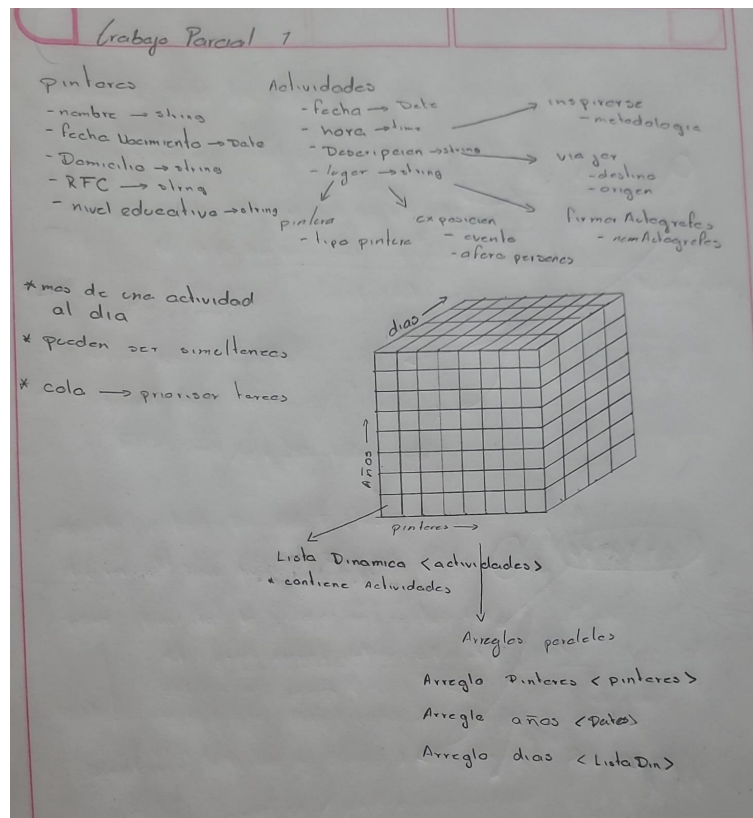 Trabajo Parcial 1
pintores
- nombre → string
- fecha Nacimiento → Date
- Domicilio → string
- RFC → string
- nivel educativo → string
Actividades
- fecha → Date
- hora → time
- Descripcion → string
- lugar → string
inspirarse
- metodologia
viajar
- destino
- origen
firmar Autografos
- numAutografos
exposicion
- evento
- aforo personas
pintura
- tipo pintura
* mas de una actividad
al dia
* pueden ser simultaneas
* cola → priorizar tareas
dias →
Años →
pintores →
Lista Dinamica <actividades>
* contiene Actividades
Arreglos paralelos
Arreglo Pintores <pintores>
Arreglo años <Dates>
Arreglo dias <Lista Din>